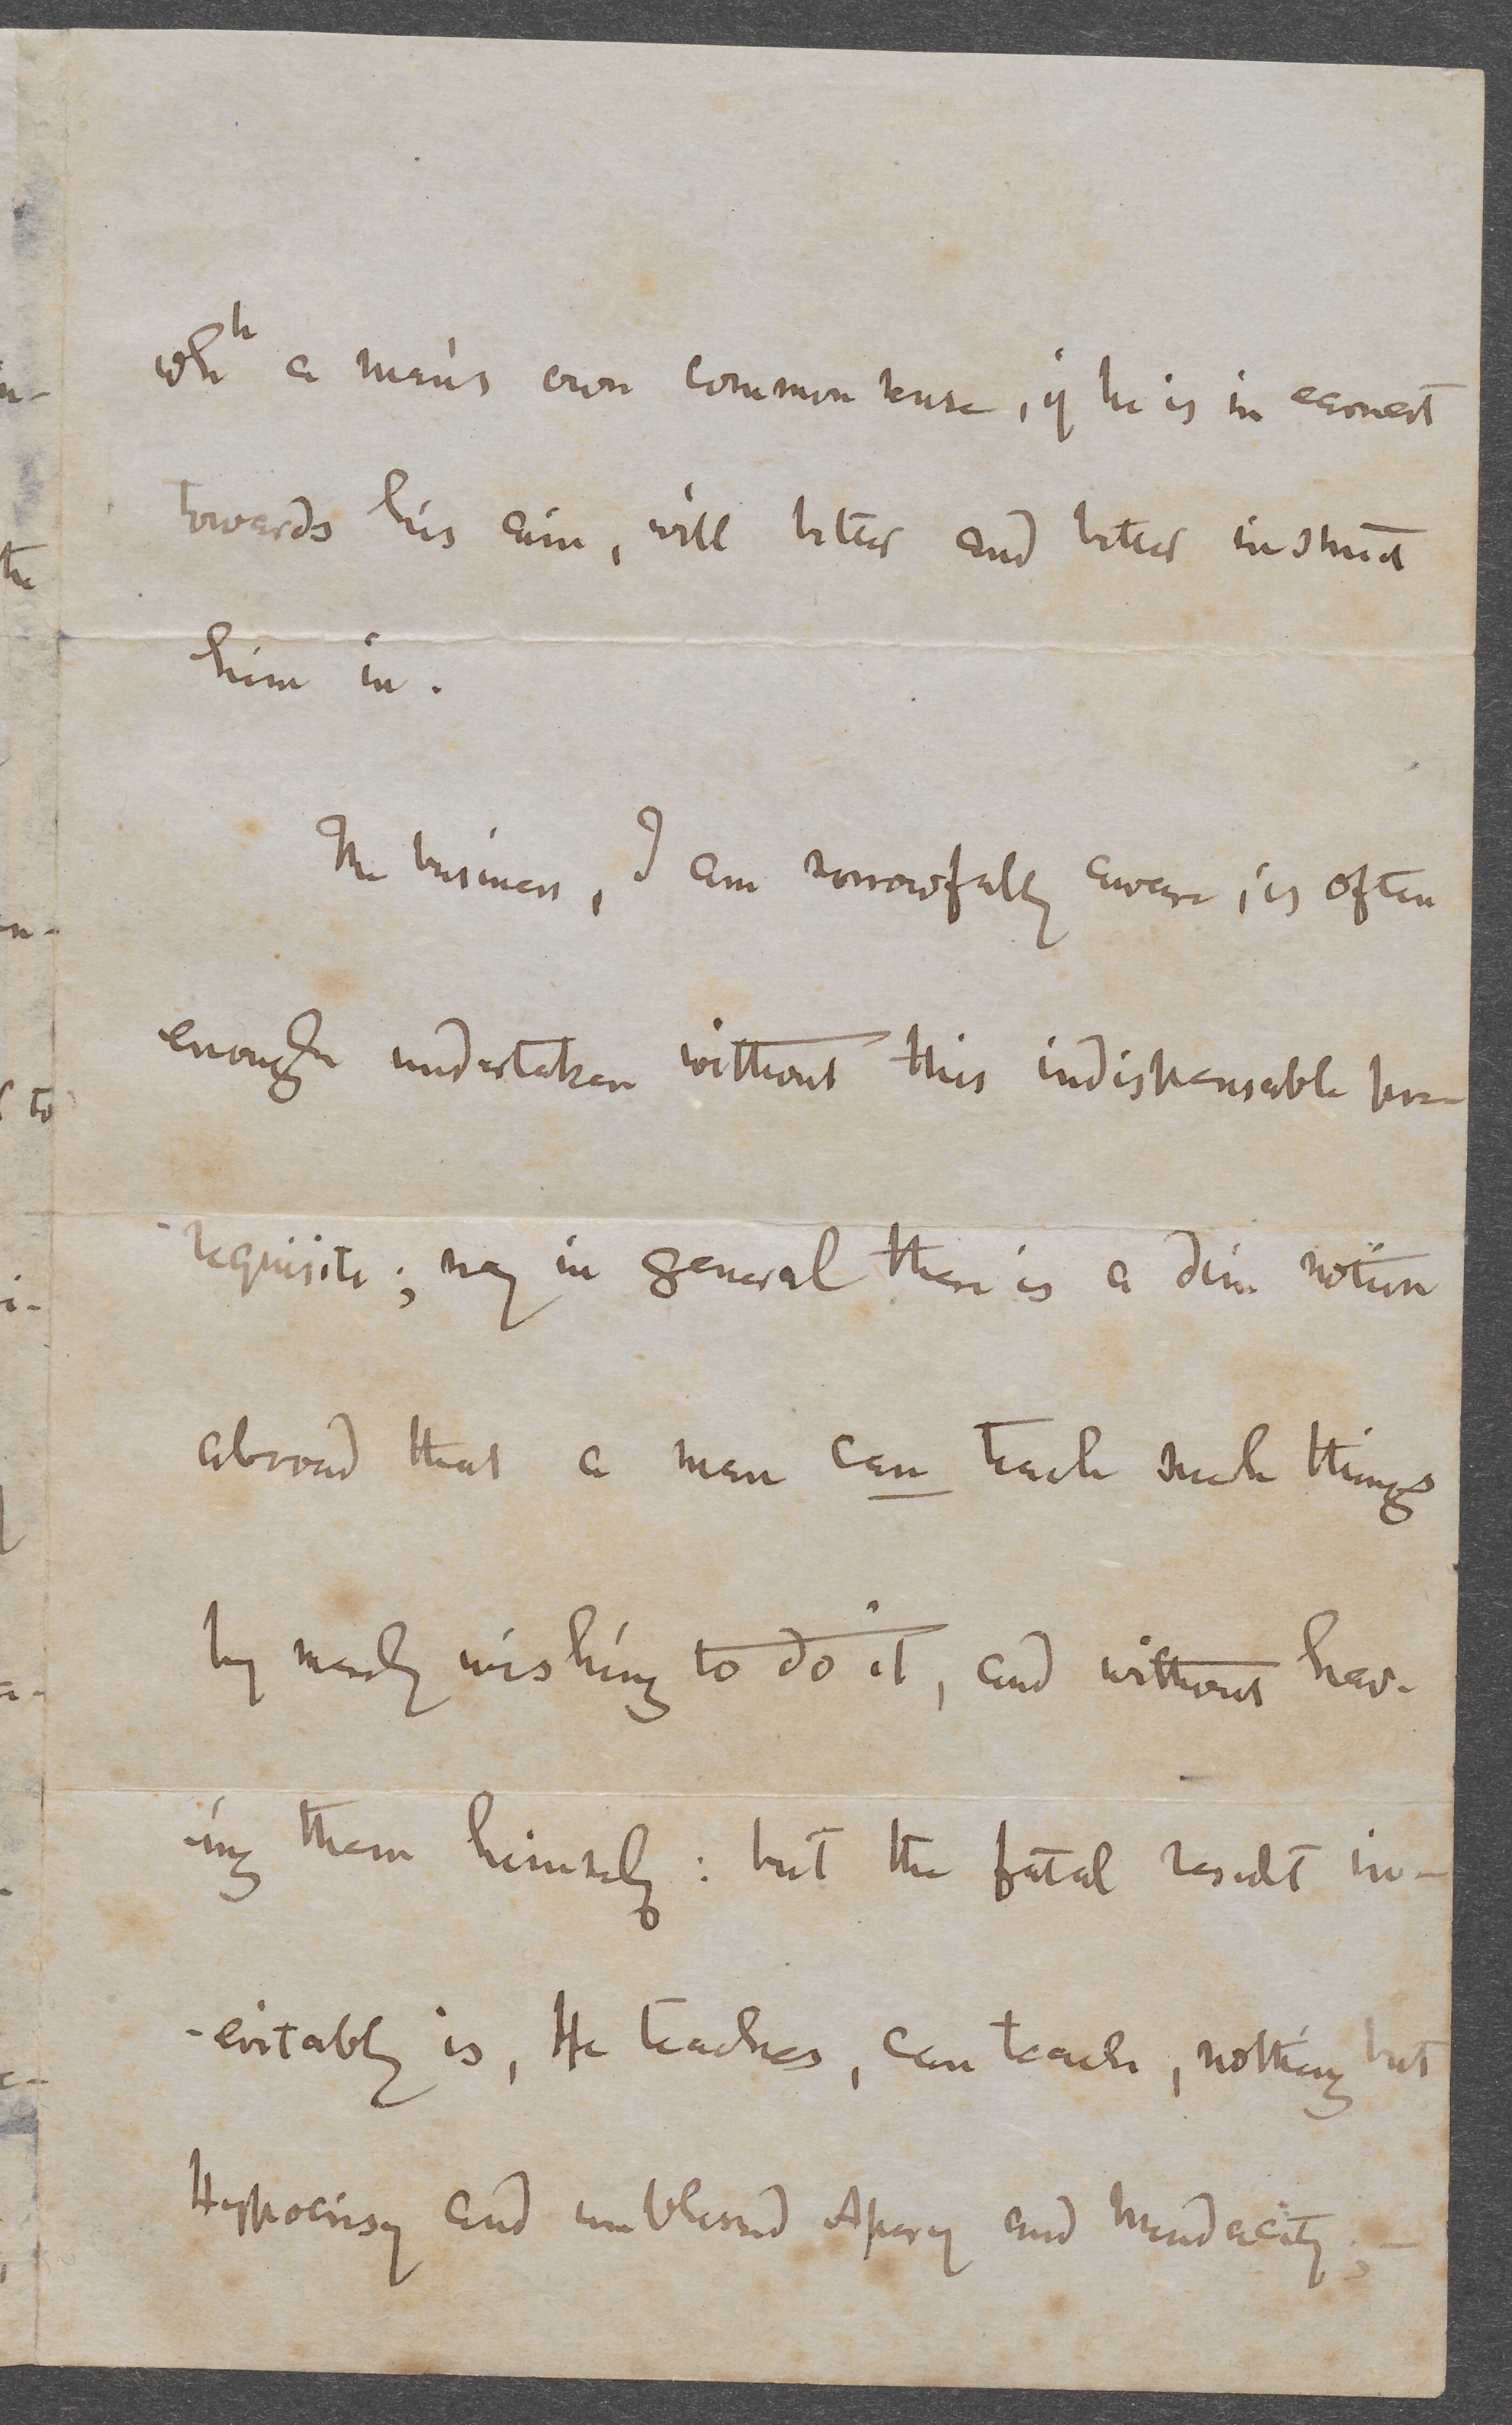 whh a man's own common sense, if he is in earnest
towards his aim, will better and better instruct
him in.
The business, I am sorrowfully aware, is often
enough undertaken without this indispensable pre-
-requisite; nay in general there is a dim notion
abroad that a man can teach such things
by merely wishing to do it, and without hav-
-ing them himself: but the fatal result in-
-evitably is, He teaches, can teach, nothing but
Hypocrisy and unblessed Apery and Mendacity;—